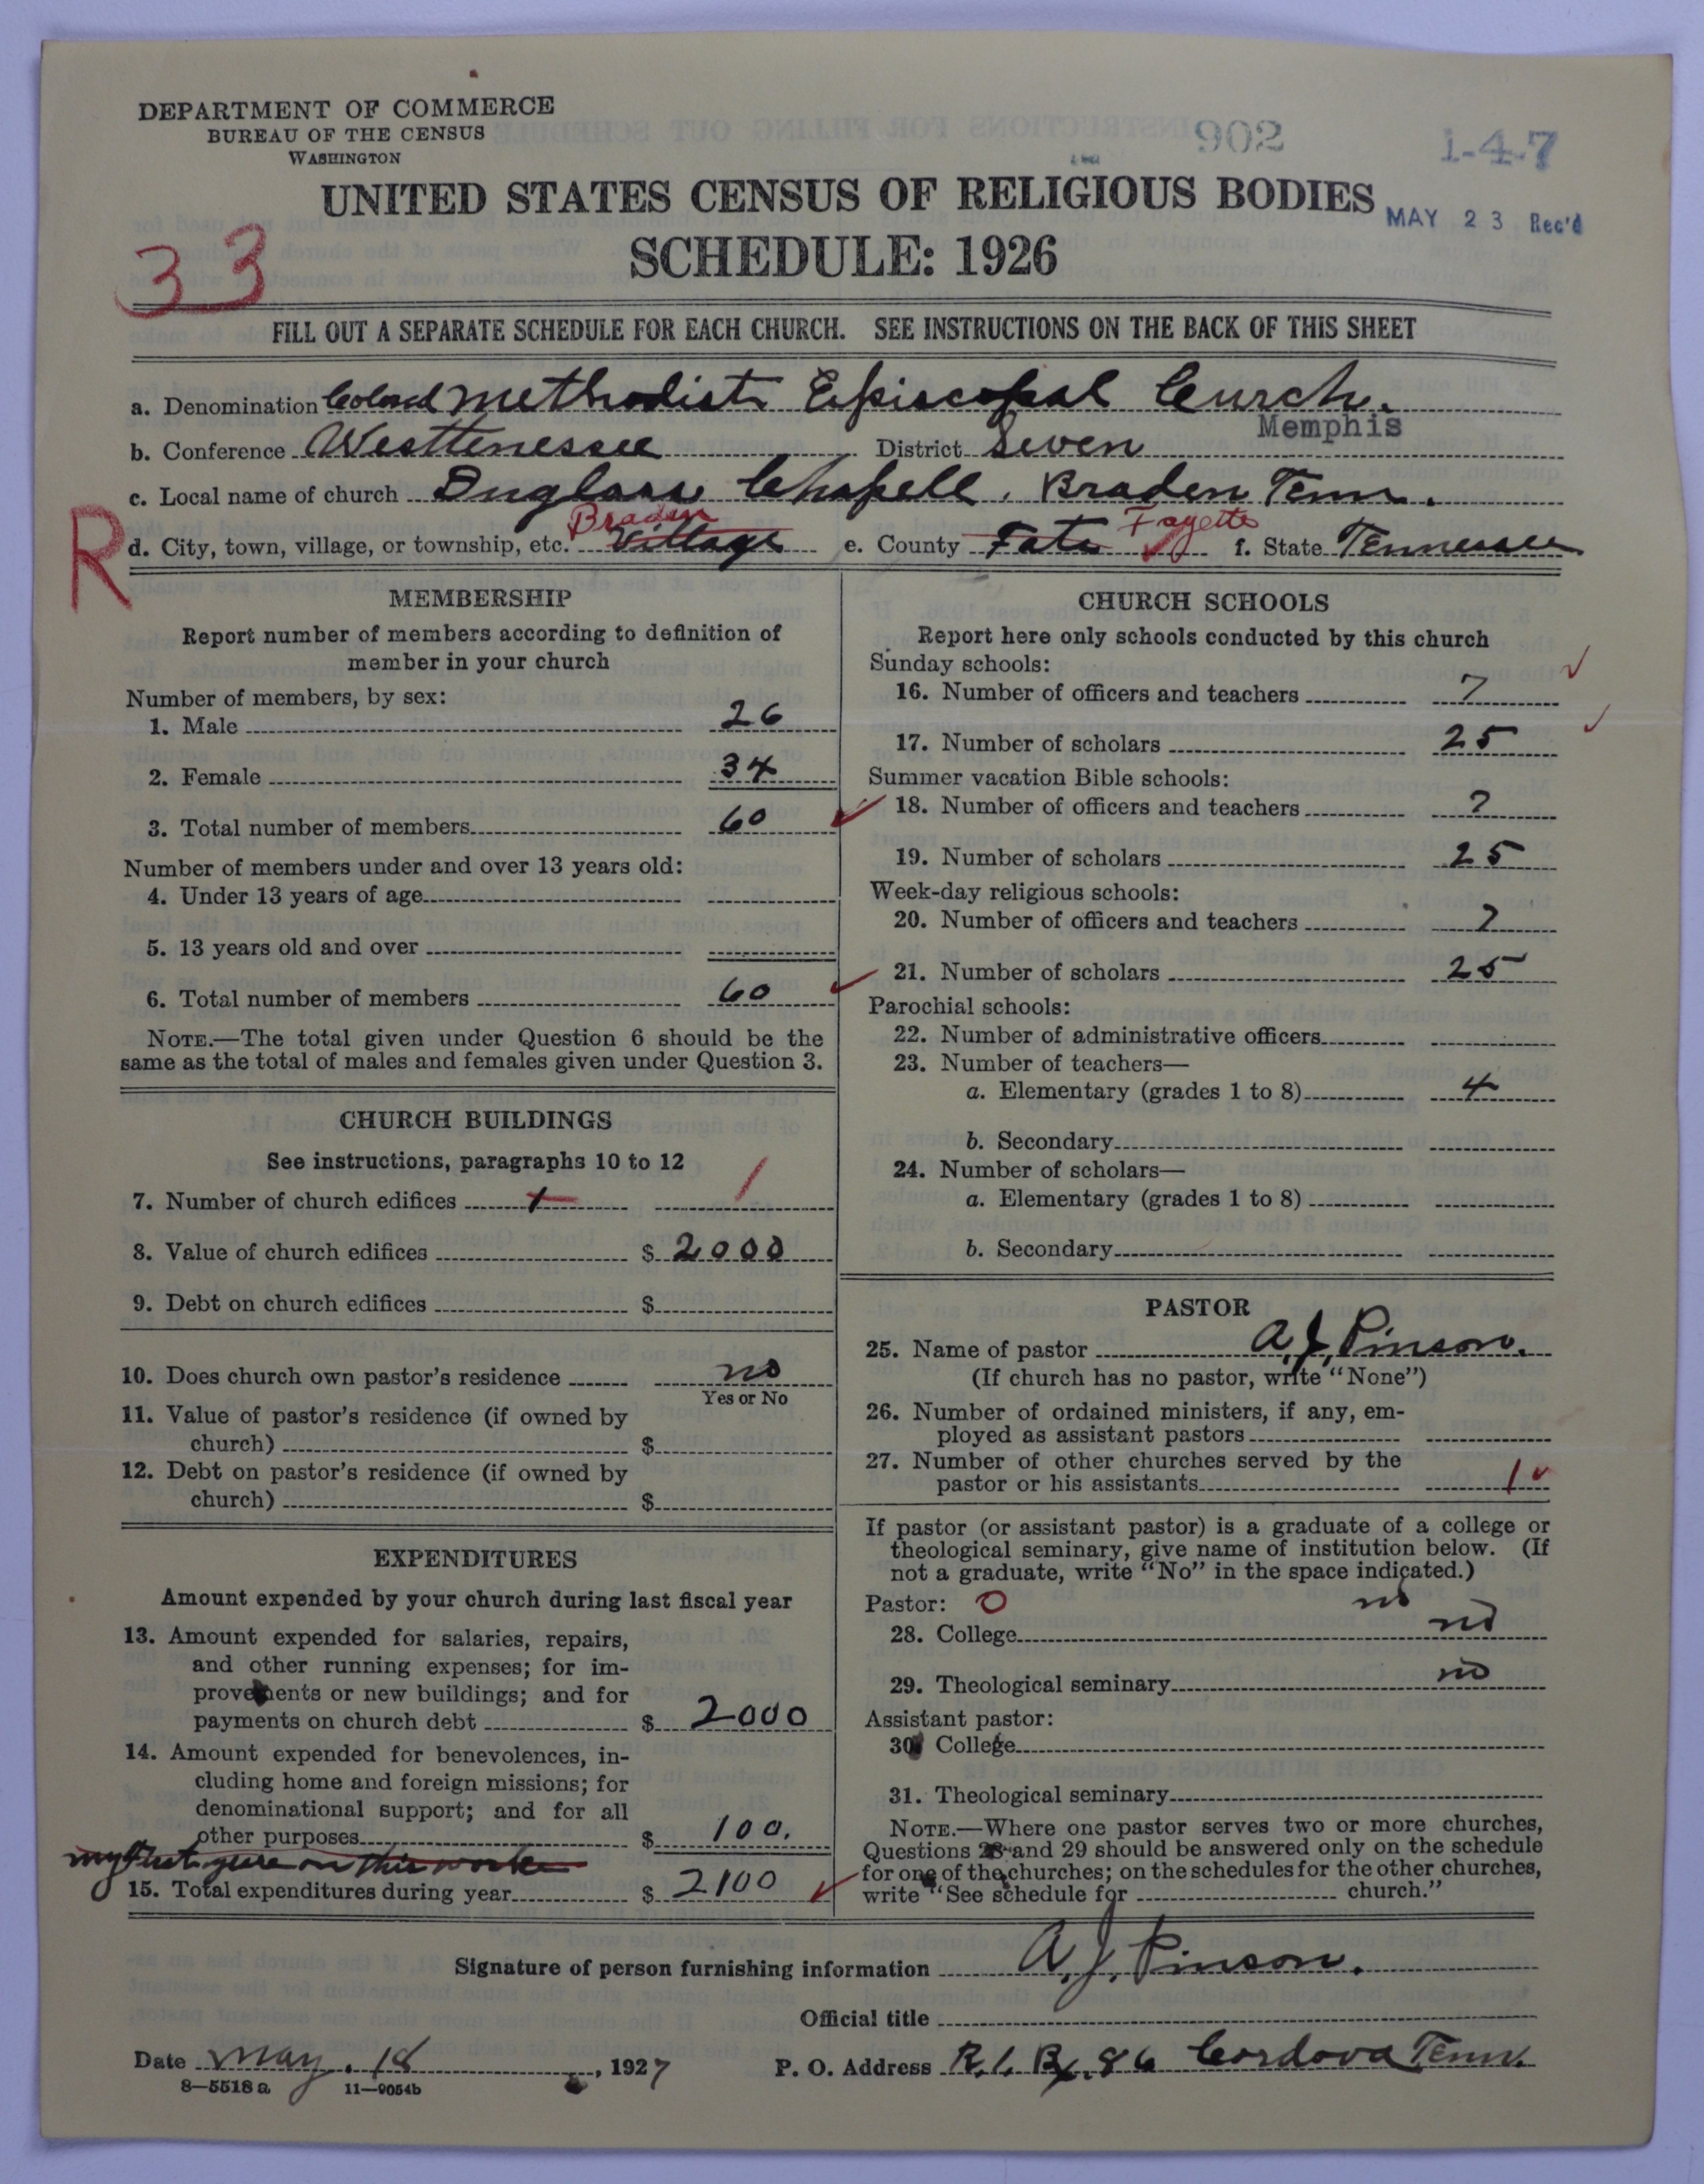 DEPARTMENT OF COMMERCE
BUREAU OF THE CENSUS
WASHINGTON
902
1-4-7
UNITED STATES CENSUS OF RELIGIOUS BODIES
MAY 23 Rec'd
SCHEDULE: 1926
33
FILL OUT A SEPARATE SCHEDULE FOR EACH CHURCH. SEE INSTRUCTIONS ON THE BACK OF THIS SHEET
a. Denomination Colored Methodist Episcopal Curch.
Memphis
b. Conference Westtenessee District Seven
c. Local name of church Duglass Chapell, Braden Tenn.
Braden Fayette
R
d. City, town, village, or township, etc. Village e. County Fate f. State Tennessee
MEMBERSHIP
Report number of members according to definition of
member in your church
Number of members, by sex:
1. Male 26
2. Female 34
3. Total number of members 60
Number of members under and over 13 years old:
4. Under 13 years of age
5. 13 years old and over
6. Total number of members 60
NOTE.—The total given under Question 6 should be the
same as the total of males and females given under Question 3.
CHURCH BUILDINGS
See instructions, paragraphs 10 to 12
7. Number of church edifices 1 1
8. Value of church edifices $ 2000
9. Debt on church edifices $
10. Does church own pastor's residence no
Yes or No
11. Value of pastor's residence (if owned by
church) $
12. Debt on pastor's residence (if owned by
church) $
EXPENDITURES
Amount expended by your church during last fiscal year
13. Amount expended for salaries, repairs,
and other running expenses; for im-
provements or new buildings; and for
payments on church debt $ 2000
14. Amount expended for benevolences, in-
cluding home and foreign missions; for
denominational support; and for all
other purposes $ 100.
my first year on this work
15. Total expenditures during year $ 2100
CHURCH SCHOOLS
Report here only schools conducted by this church
Sunday schools:
16. Number of officers and teachers 7
17. Number of scholars 25
Summer vacation Bible schools:
18. Number of officers and teachers 7
19. Number of scholars 25
Week-day religious schools:
20. Number of officers and teachers 7
21. Number of scholars 25
Parochial schools:
22. Number of administrative officers
23. Number of teachers—
a. Elementary (grades 1 to 8) 4
b. Secondary
24. Number of scholars—
a. Elementary (grades 1 to 8)
b. Secondary
PASTOR
25. Name of pastor A. J. Pinson.
(If church has no pastor, write "None")
26. Number of ordained ministers, if any, em-
ployed as assistant pastors
27. Number of other churches served by the
pastor or his assistants 1
If pastor (or assistant pastor) is a graduate of a college or
theological seminary, give name of institution below. (If
not a graduate, write "No" in the space indicated.)
Pastor: 0 no
28. College no
29. Theological seminary no
Assistant pastor:
30. College
31. Theological seminary
NOTE.—Where one pastor serves two or more churches,
Questions 28 and 29 should be answered only on the schedule
for one of the churches; on the schedules for the other churches,
write "See schedule for church."
Signature of person furnishing information A. J. Pinson.
Official title
Date May. 18, 1927 P. O. Address R. 1. Bx. 86 Cordova Tenn.
8—5518 a 11—9054b